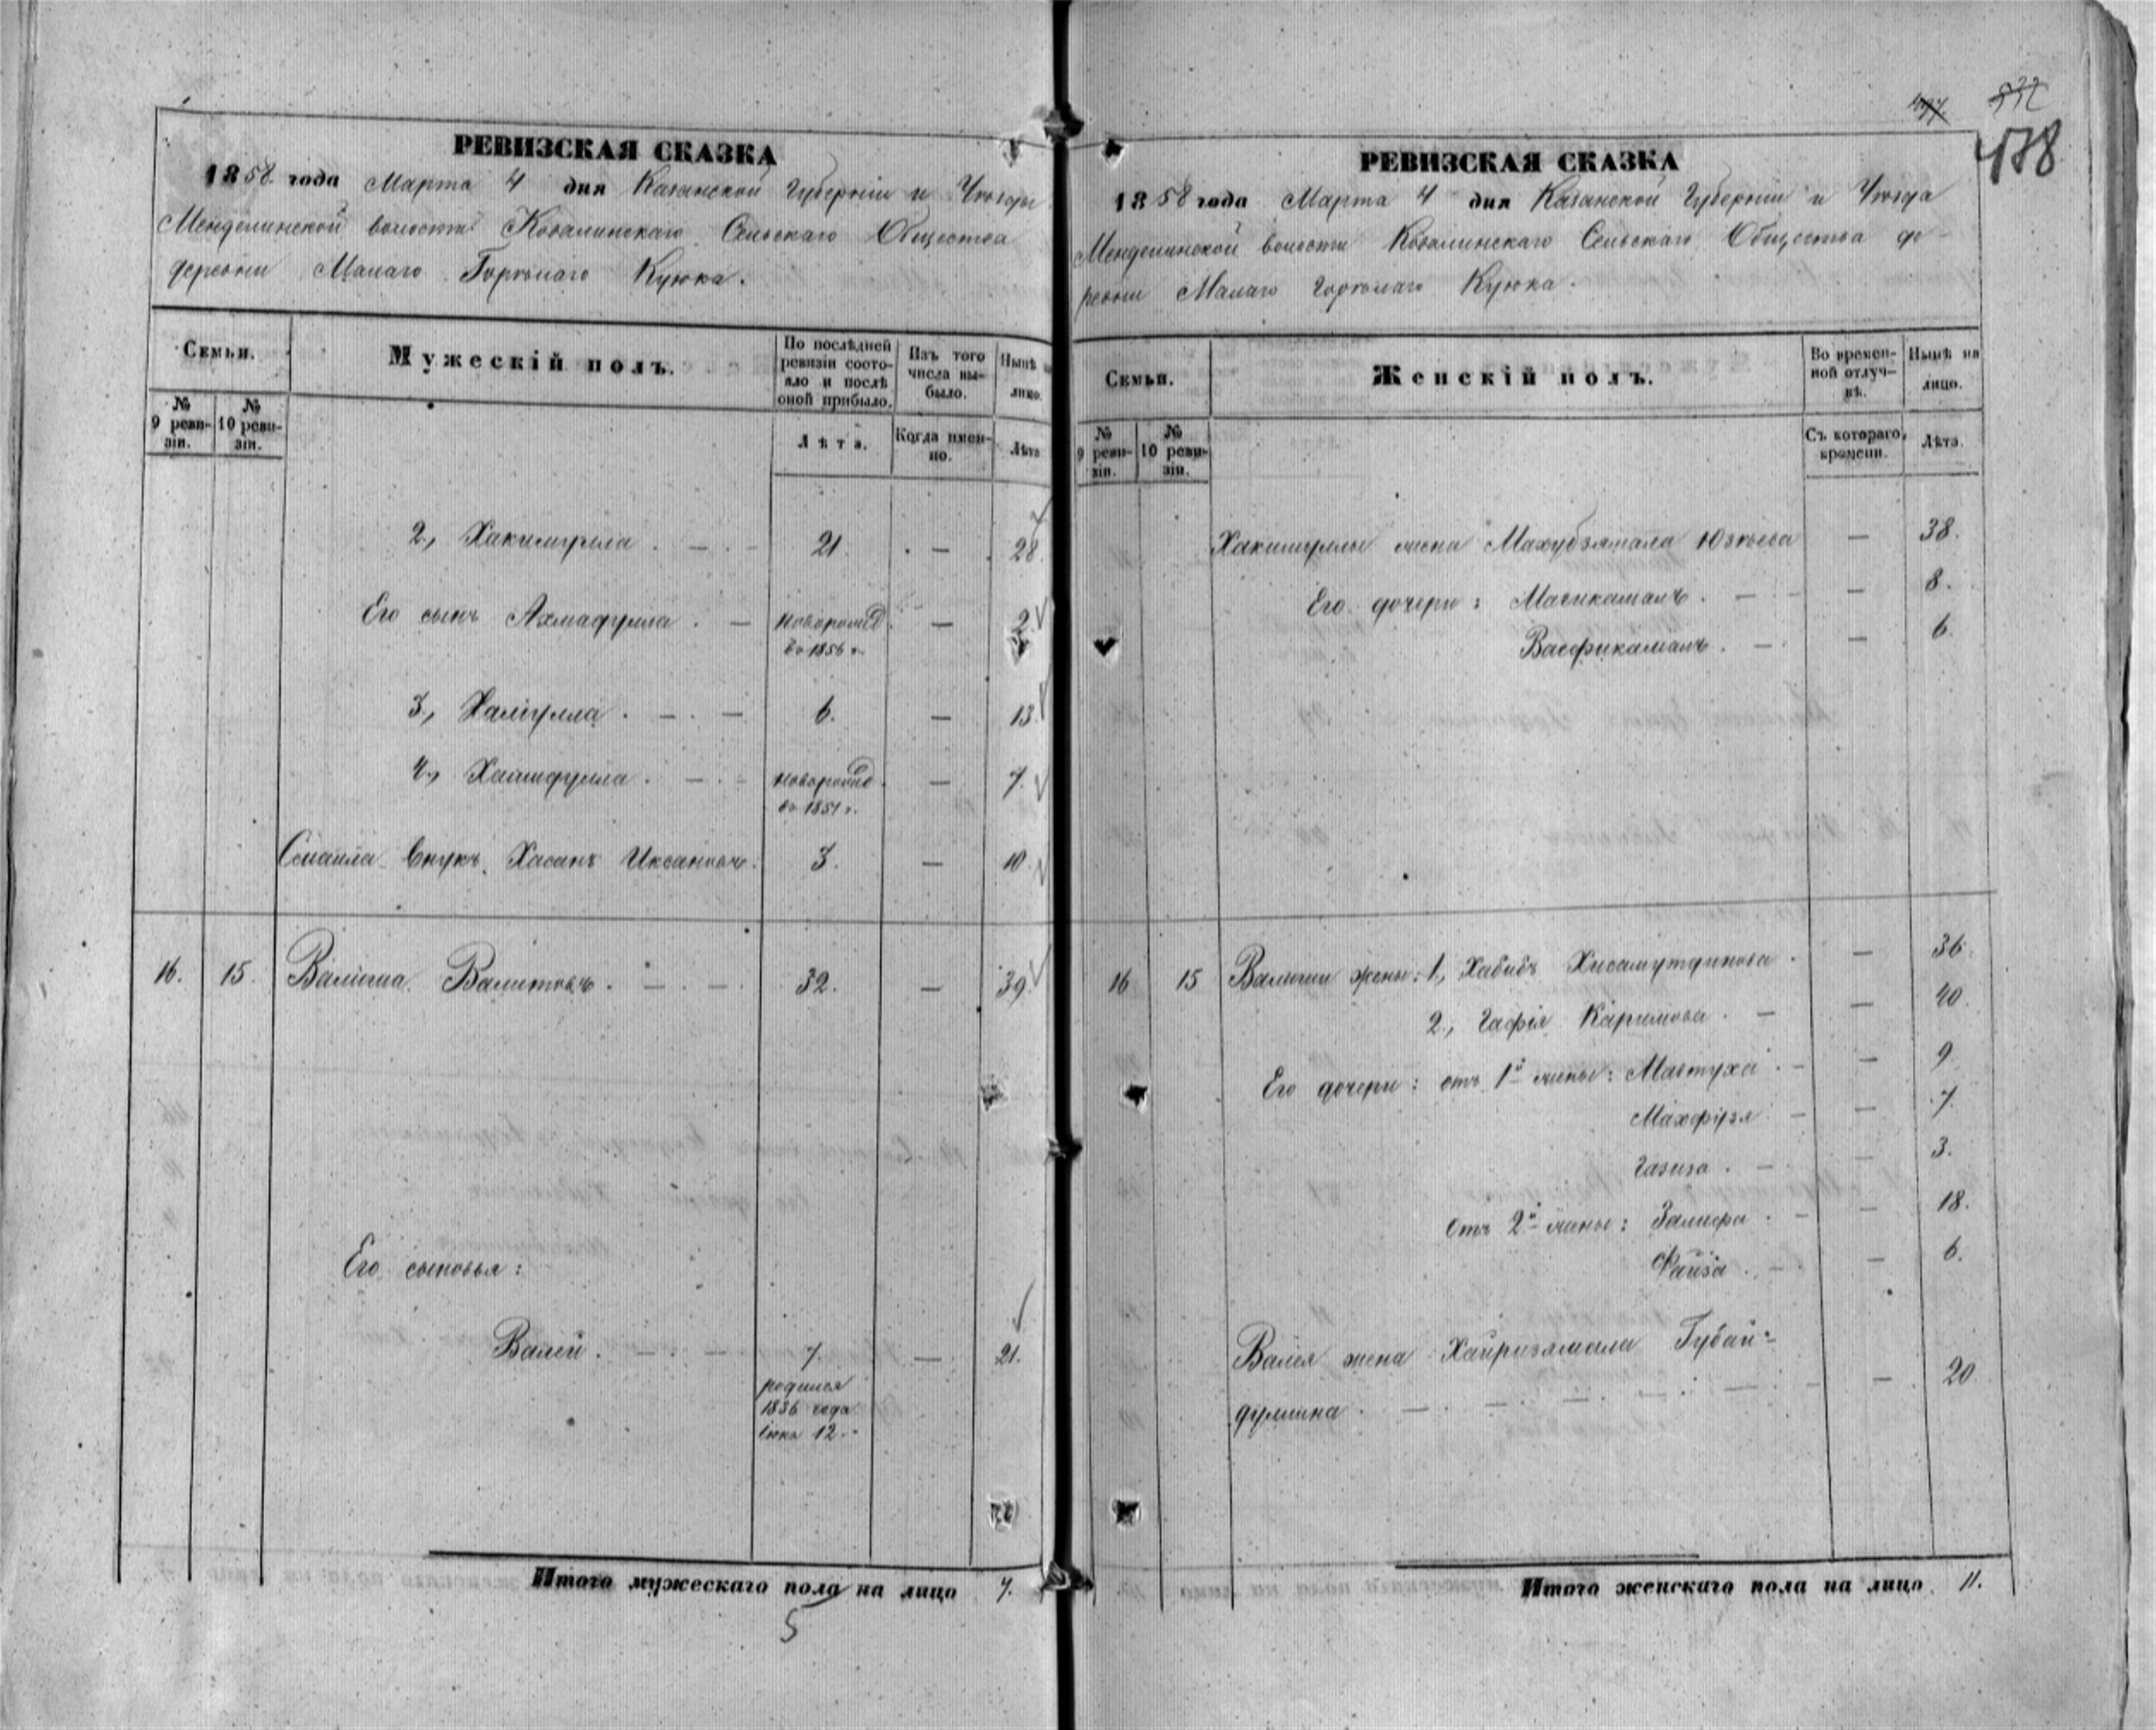 РЕВИЗСКАЯ СКАЗКА
1858 года Марта 4 дня Казанской Губерніи и Уѣзда
Менделинской волости Ковалинскаго Сельскаго Общества
деревни Малаго Горѣлаго Куюка.
Семьи.
Мужескій полъ.
По послѣдней ревизіи состояло и послѣ оной прибыло.
Изъ того числа выбыло.
Нынѣ на лицо.
№ 9 ревизіи.
№ 10 ревизіи.
Лѣта.
Когда именно.
Лѣта
2., Хакимулла . — . — 21. . — . 28.
Его сынъ Ахмадулла . — новорожд. — 2
въ 1856 г.
3., Халіулла . — . — 6. — 13.
4., — . — новорожд. — 7.
въ 1851 г.
внукъ Хасанъ Иксановъ. 3. — 10.
16. 15. Валиша Валитовъ . — . — 32. — 39.
Его сыновья:
Валей . — . — 7. — 21.
родился
1836 года
12.
Итого мужескаго пола на лицо 7.
5
532
478
РЕВИЗСКАЯ СКАЗКА
1858 года Марта 4 дня Казанской Губерніи и Уѣзда
Менделинской волости Ковалинскаго Сельскаго Общества де-
ревни Малаго Горѣлаго Куюка.
Семьи.
Женскій полъ.
Во временной отлучкѣ.
Нынѣ на лицо.
№ 9 ревизіи.
№ 10 ревизіи.
Съ котораго времени.
Лѣта.
Хакимуллы жена Махубзямала Юзѣева — 38.
Его дочери: . — — 8.
Васфикамалъ . — — 6.
16 15 Валиши жены: 1, Хабибъ Хисамутдинова . — 36.
2., Гафія Каримова . — — 40.
Его дочери: отъ 1й жены: Мастуха . — — 9
Махфузя — — 7.
Газиза . — — 3.
Отъ 2й жены: Залифа . — — 18.
Фаиза . — — 6.
Валея жена Хайризямала Губай-
дуллина . — . — . — . — — 20
Итого женскаго пола на лицо 11.